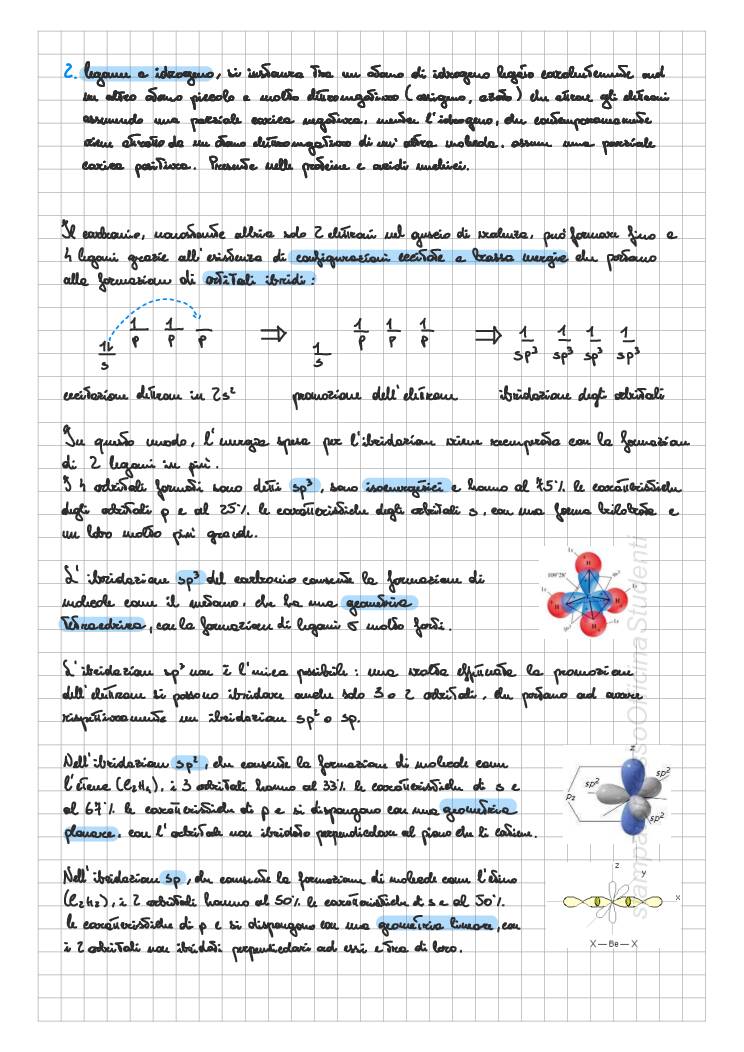 2. legame a idrogeno, si instaura tra un atomo di idrogeno legato covalentemente ad
un altro atomo piccolo e molto elettronegativo (ossigeno, azoto) che attrae gli elettroni
assumendo una parziale carica negativa, mentre l'idrogeno, che contemporaneamente
viene attratto da un atomo elettronegativo di un'altra molecola, assume una parziale
carica positiva. Presente nelle proteine e acidi nucleici.
Il carbonio, nonostante abbia solo 2 elettroni nel guscio di valenza, può formare fino a
4 legami grazie all'esistenza di configurazioni eccitate a bassa energia che portano
alla formazione di orbitali ibridi:
1 1 _ ⇒ 1 1 1 ⇒ 1 1 1 1
p p p p p p sp³ sp³ sp³ sp³
1↓ 1
s s
eccitazione elettrone in 2s² promozione dell'elettrone ibridazione degli orbitali
In questo modo, l'energia spesa per l'ibridazione viene recuperata con la formazione
di 2 legami in più.
I 4 orbitali formati sono detti sp³, sono isoenergetici e hanno al 75% le caratteristiche
degli orbitali p e al 25% le caratteristiche degli orbitali s, con una forma bilobata e
un lobo molto più grande.
L'ibridazione sp³ del carbonio consente la formazione di
molecole come il metano, che ha una geometria
tetraedrica, con la formazione di legami σ molto forti.
1s
H
109°28'
sp³
1s
H
H
1s
H
L'ibridazione sp³ non è l'unica possibile: una volta effettuata la promozione
dell'elettrone si possono ibridare anche solo 3 o 2 orbitali, che portano ad avere
rispettivamente un ibridazione sp² o sp.
Nell'ibridazione sp², che consente la formazione di molecole come
l'etene (C₂H₄), i 3 orbitali hanno al 33% le caratteristiche di s e
al 67% le caratteristiche di p e si dispongono con una geometria
planare, con l'orbitale non ibridato perpendicolare al piano che li contiene.
z
sp²
sp²
pz
sp²
Nell'ibridazione sp, che consente la formazione di molecole come l'etino
(C₂H₂), i 2 orbitali hanno al 50% le caratteristiche di s e al 50%
le caratteristiche di p e si dispongono con una geometria lineare, con
i 2 orbitali non ibridati perpendicolari ad essi e tra di loro.
z
y
x
X—Be—X
stampato presso Officina Studenti